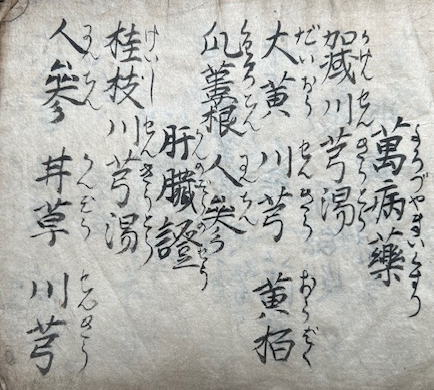 萬病藥
よろづやまいくすり
加減川芎湯
かげんせんきうとう
大黄 川芎 黄栢
だいおう せんきう おうばく
瓜蔞根 人參
にんじん
肝臓證
かんのぞうのせう
桂枝川芎湯
けいしせんきうとう
人參 井草 川芎
にんじん かんぞう せんきう